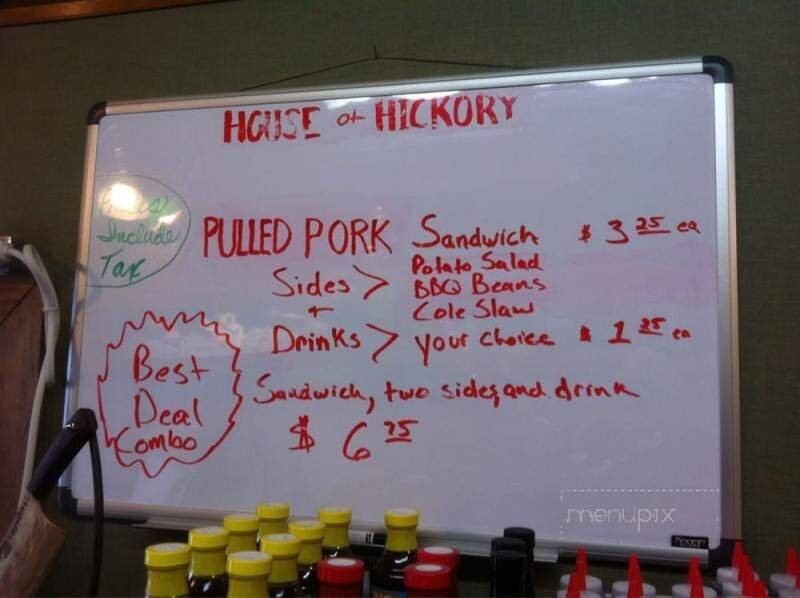 HOUSE of HICKORY
Prices
Include
Tax
PULLED PORK Sandwich $3.25 ea
Sides > Potato Salad
BBQ Beans
Cole Slaw
+
Drinks > your choice $1.25 ea
Best
Deal
Combo
Sandwich, two sides, and drink
$6.25
menupix